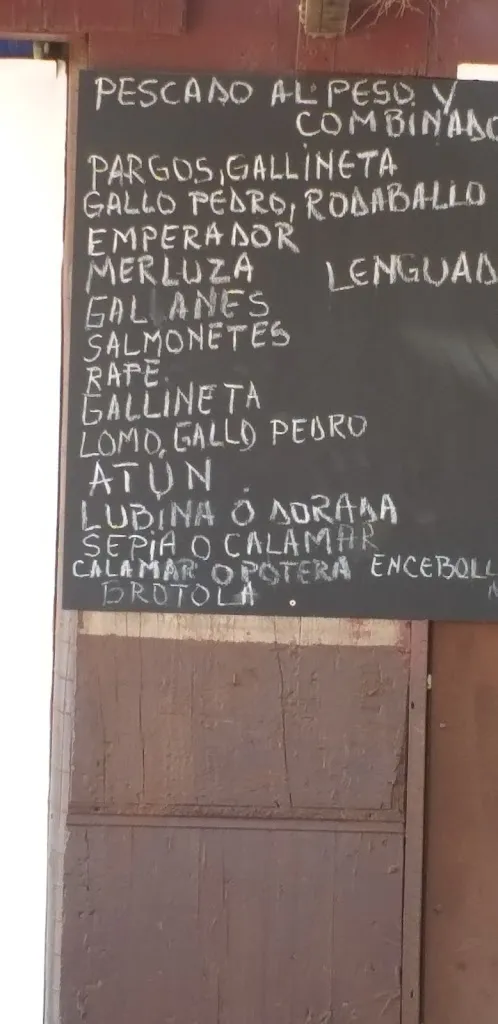 PESCADO AL PESO Y
COMBINADO
PARGOS, GALLINETA
GALLO PEDRO, RODABALLO
EMPERADOR
MERLUZA LENGUAD
GALLANES
SALMONETES
RAPE
GALLINETA
LOMO, GALLO PEDRO
ATUN
LUBINA O DORADA
SEPiA O CALAMAR
CALAMAR O POTERA ENCEBOLL
BROTOLA